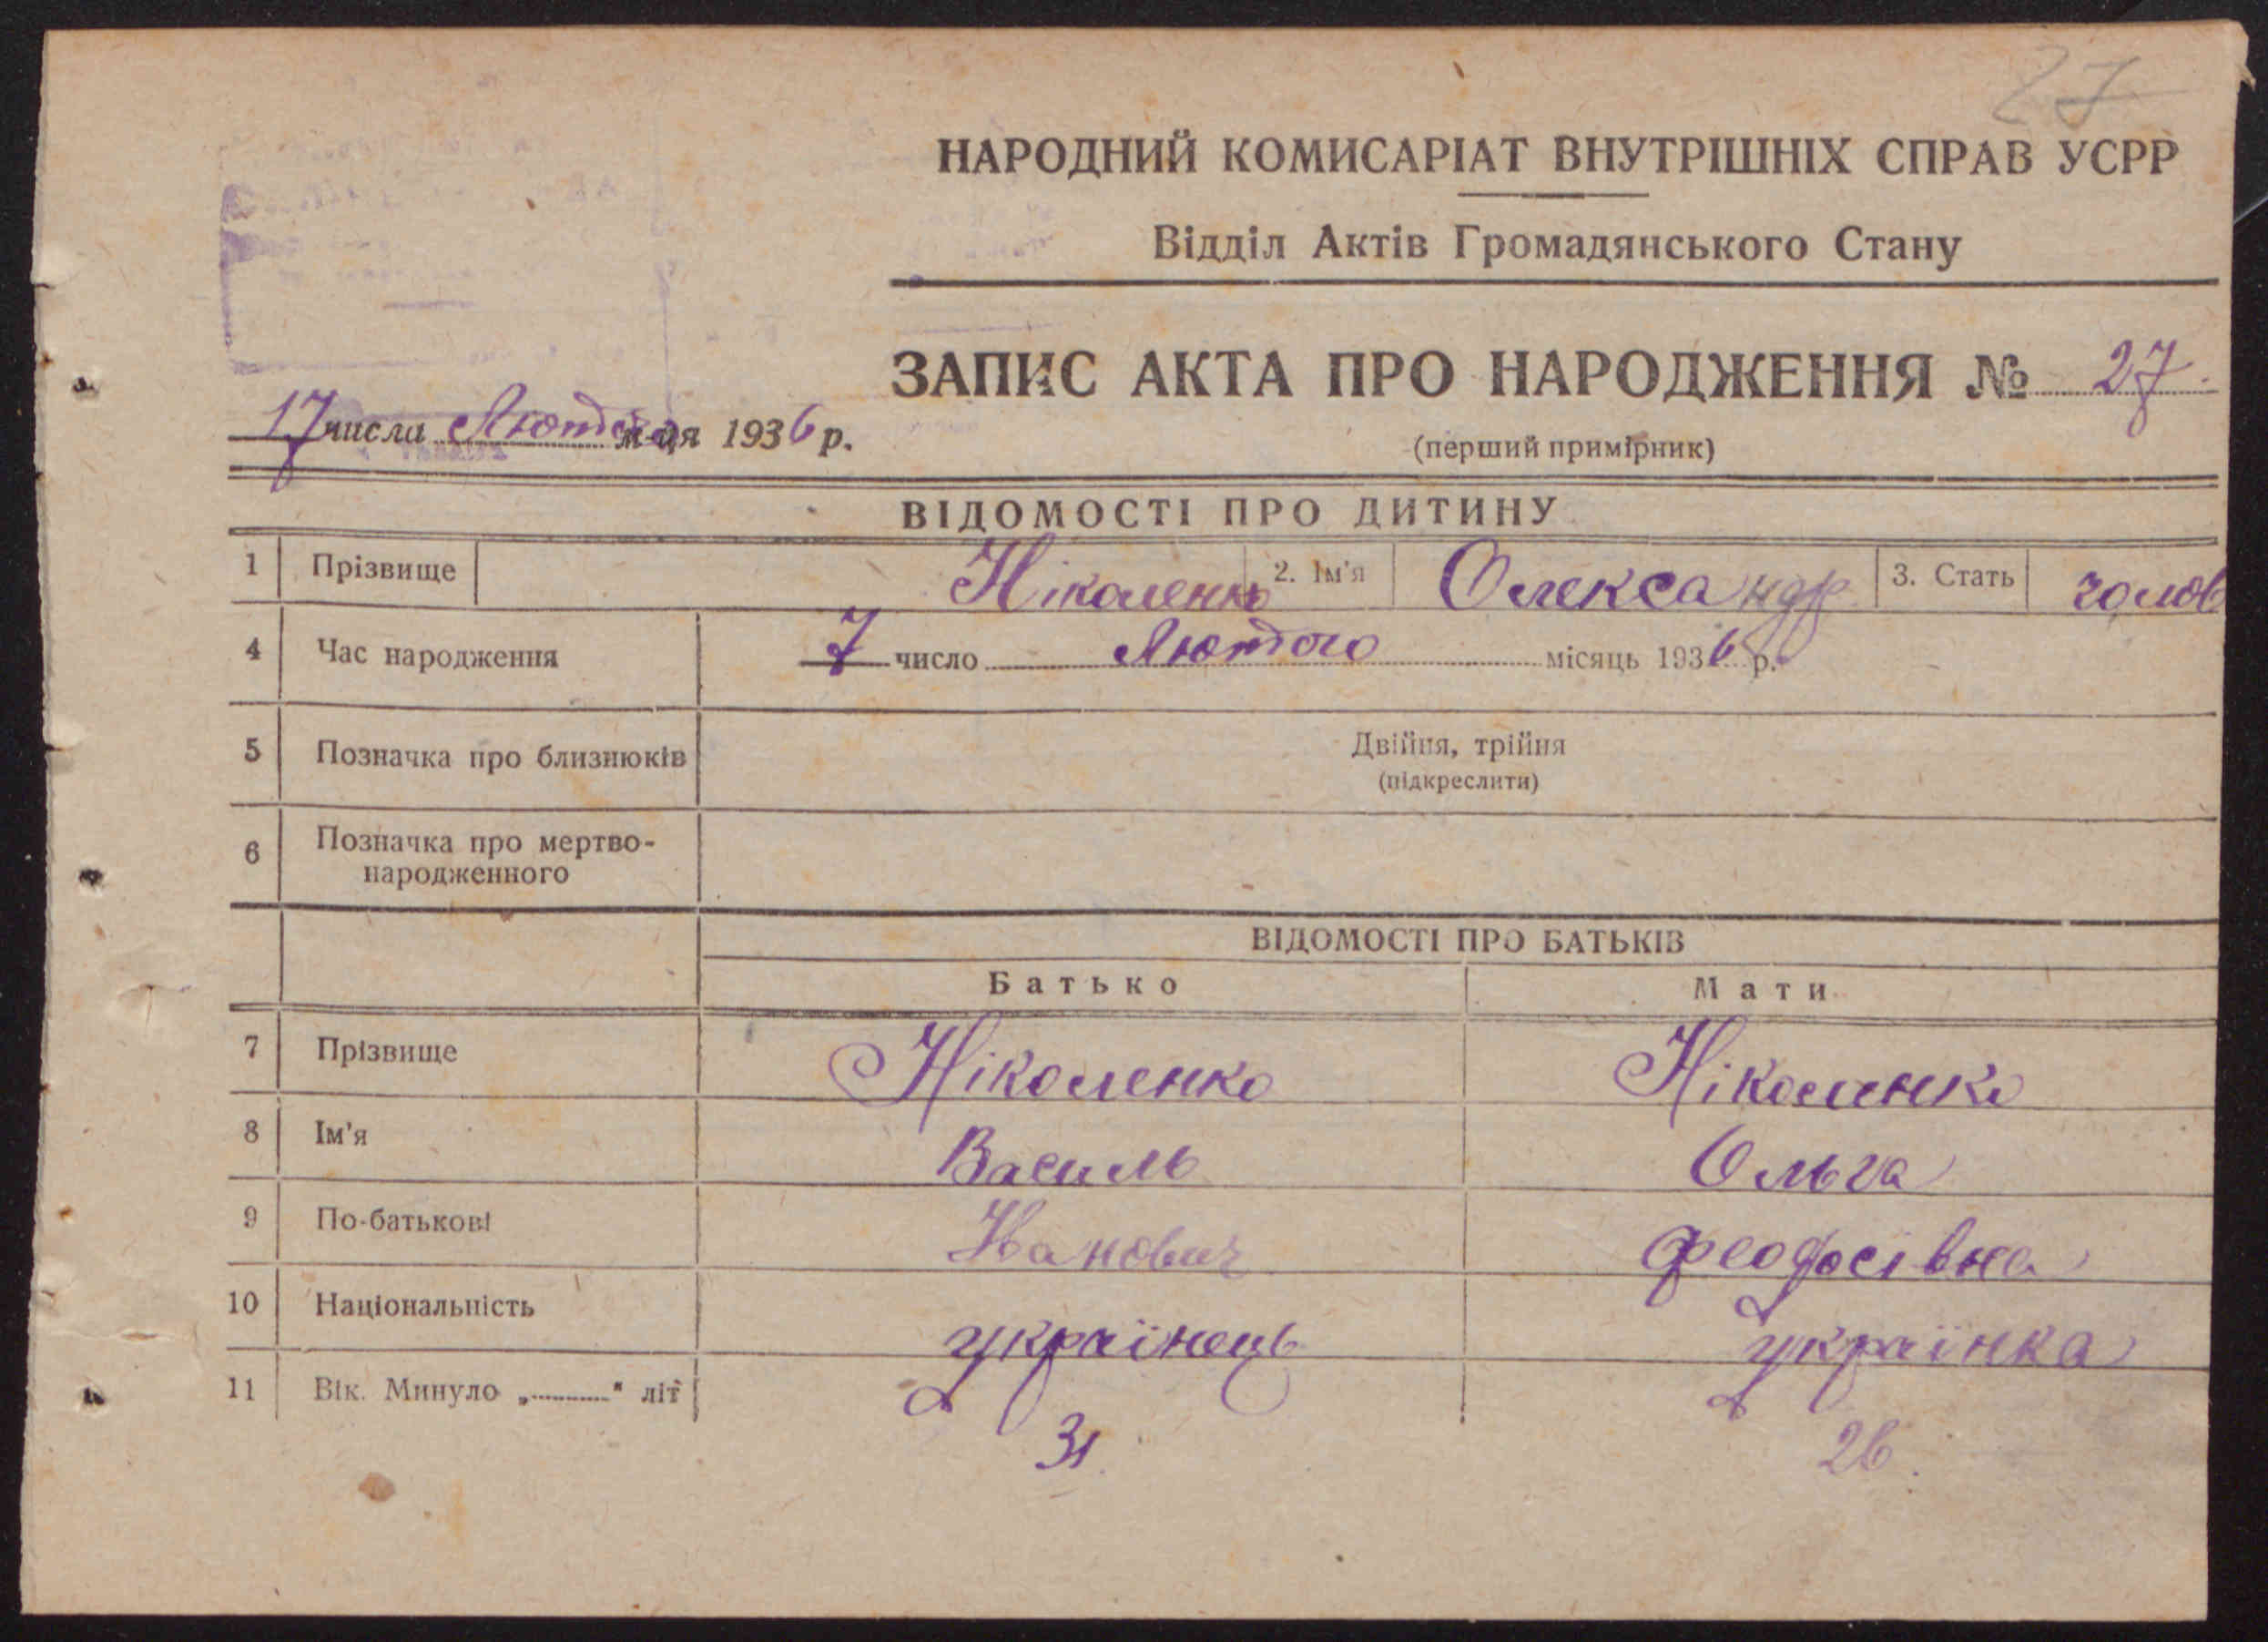 27
НАРОДНИЙ КОМИСАРІАТ ВНУТРІШНІХ СПРАВ УСРР
Відділ Актів Громадянського Стану
ЗАПИС АКТА ПРО НАРОДЖЕННЯ № 27.
17 числа Лютого м-ця 1936 р.
(перший примірник)
ВІДОМОСТІ ПРО ДИТИНУ
1 Прізвище Ніколенко 2. Ім'я Олександр 3. Стать чолов
4 Час народження 7 число Лютого місяць 1936 р.
5 Позначка про близнюків Двійня, трійня
(підкреслити)
6 Позначка про мертво-
народженного
ВІДОМОСТІ ПРО БАТЬКІВ
Батько Мати
7 Прізвище Ніколенко Ніколенко
8 Ім'я Василь Ольга
9 По-батькові Іванович Феодосівна
10 Національність українець українка
11 Вік. Минуло „..........“ літ 31 26